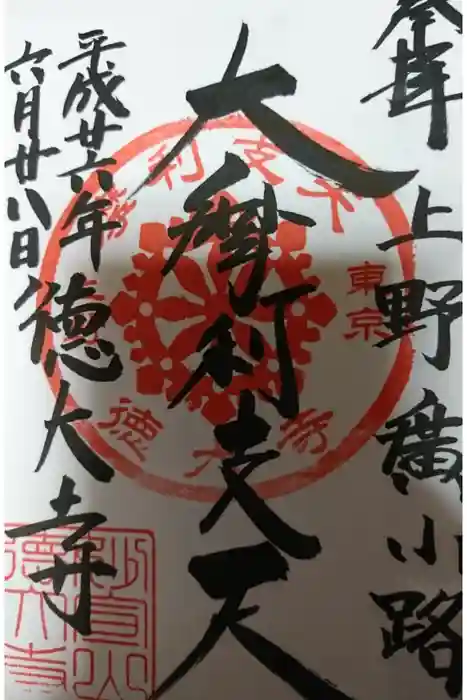 奉拝 上野廣小路
大摩利支天
平成廿六年
六月廿八日
徳大寺
摩利支天
東京
徳大寺
妙宣山
徳大寺